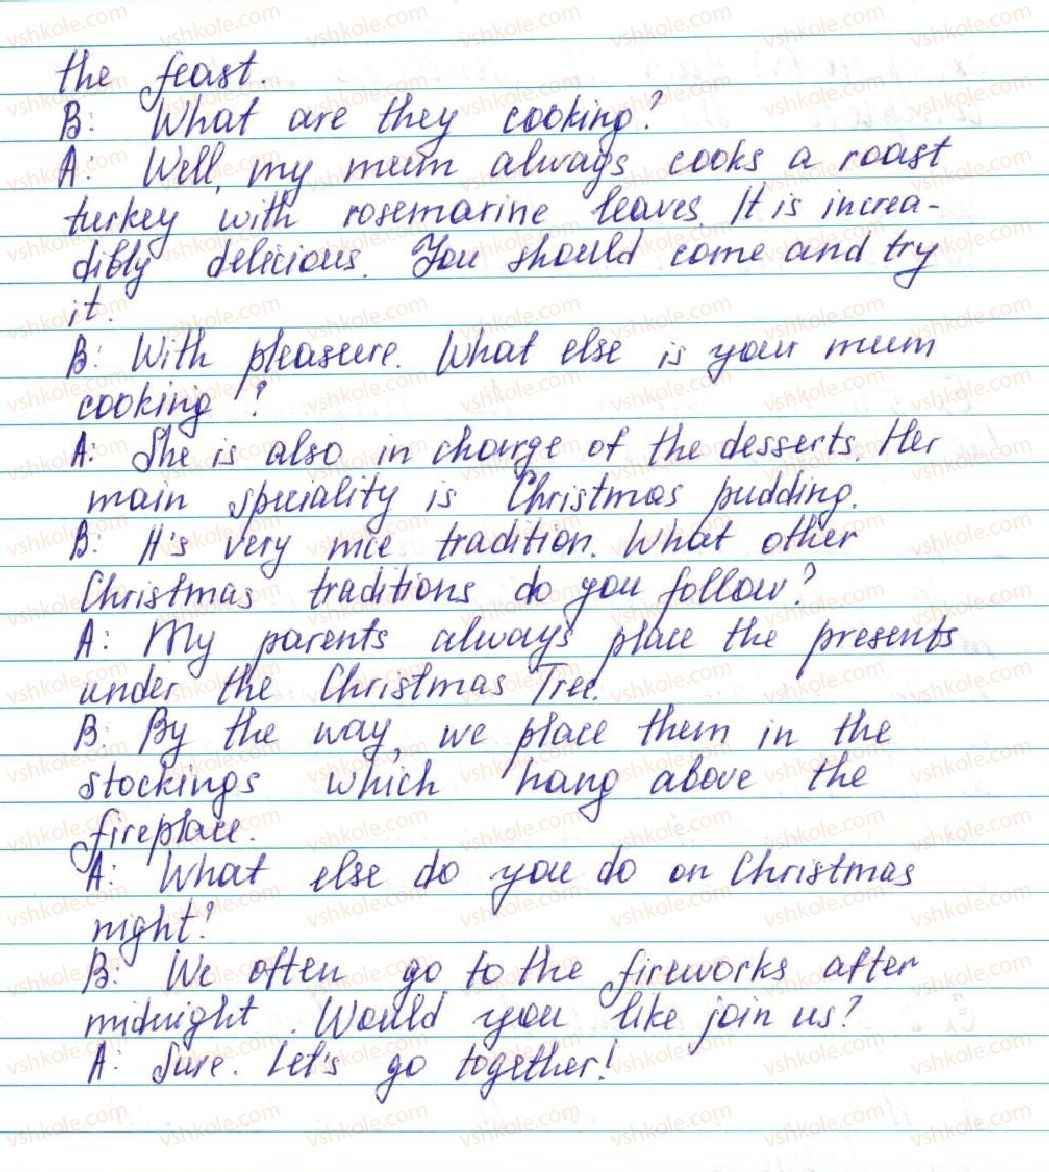 the feast.
B: What are they cooking?
A: Well, my mum always cooks a roast
turkey with rosemarine leaves. It is increa-
dibly delicious. You should come and try
it.
B: With pleasure. What else is your mum
cooking?
A: She is also in charge of the desserts. Her
main speciality is Christmas pudding.
B: It's very nice tradition. What other
Christmas traditions do you follow?
A: My parents always place the presents
under the Christmas Tree.
B: By the way, we place them in the
stockings which hang above the
fireplace.
A: What else do you do on Christmas
night?
B: We often go to the fireworks after
midnight. Would you like join us?
A: Sure. Let's go together!